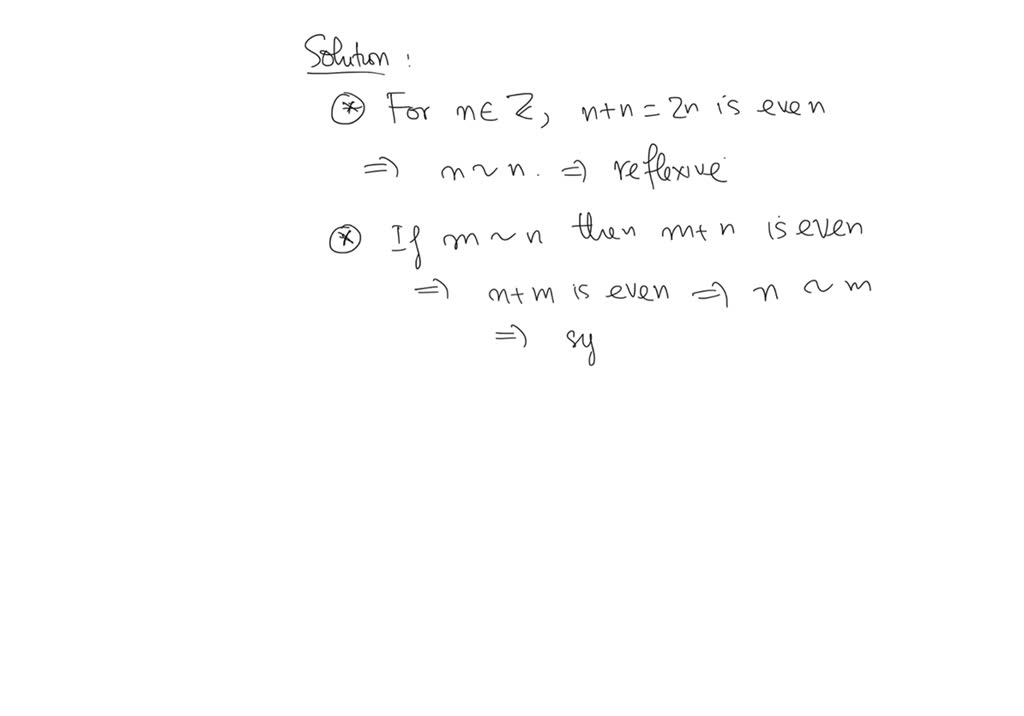 Solution :
⊛ For n∈ ℤ, n+n = 2n is even
⇒ n ~ n . ⇒ reflexive
⊛ If m ~ n then m+n is even
⇒ n+m is even ⇒ n ~ m
⇒ sy